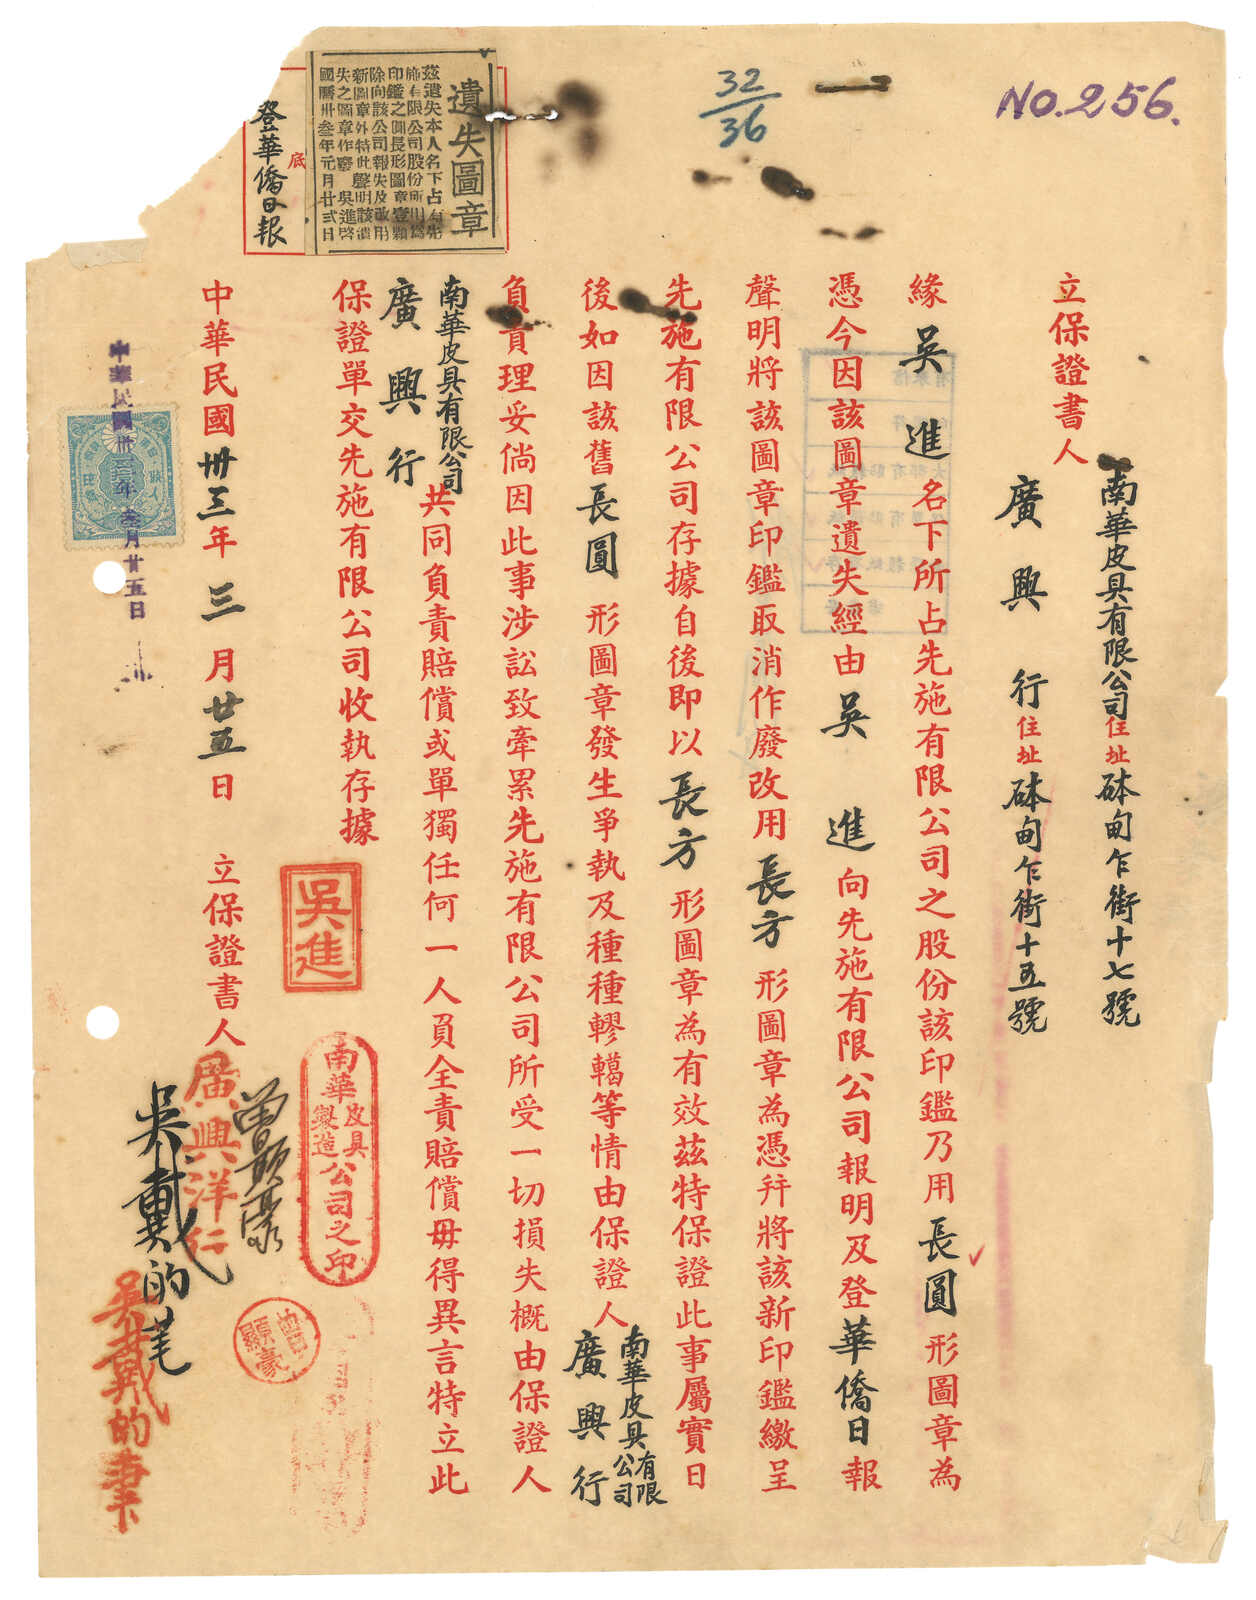 NO.256.
32
36
立保證書人
南華皮具有限公司住址砵甸乍街十七號
廣興行住址砵甸乍街十五號
緣吳進名下所占先施有限公司之股份該印鑑乃用長圓形圖章為
憑今因該圖章遺失經由吳進向先施有限公司報明及登華僑日報
聲明將該圖章印鑑取消作廢改用長方形圖章為憑并將該新印鑑繳呈
先施有限公司存據自後即以長方形圖章為有效茲特保證此事屬實日
後如因該舊長圓形圖章發生爭執及種種轇轕等情由保證人南華皮具有限公司
廣興行
負責理妥倘因此事涉訟致牽累先施有限公司所受一切損失概由保證人
南華皮具有限公司
廣興行
共同負責賠償或單獨任何一人員全責賠償毋得異言特立此
保證單交先施有限公司收執存據
中華民國卅三年三月廿五日
立保證書人
遺失圖章
茲遺失本人名下占有先
施有限公司股份所用為
印鑑之圓長形圖章壹顆
除向該公司報失及改用
新圖章外特此聲明該遺
失之圖章作廢 吳進啓
國曆卅叁年元月廿弍日
底
登華僑日報
吳進
南華皮具製造公司之印
曾顯豪
廣興洋行
吳戴的筆
曾顯豪
吳戴的筆
中華民國卅三年叁月廿五日